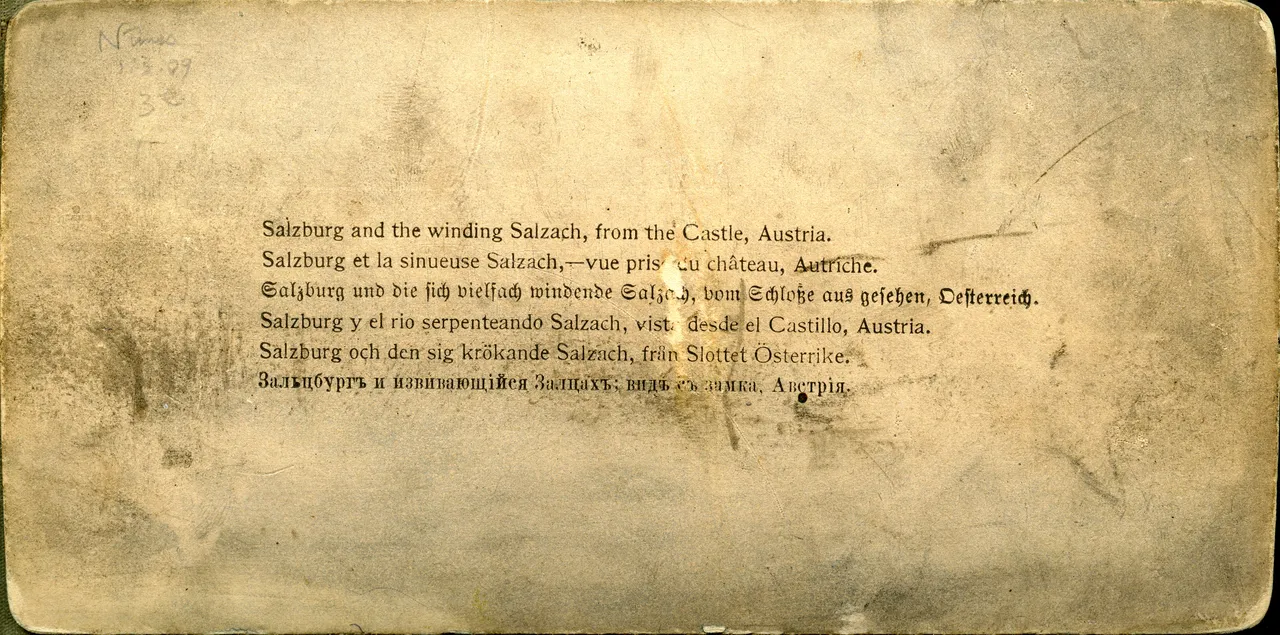 1.3.09
3
Salzburg and the winding Salzach, from the Castle, Austria.
Salzburg et la sinueuse Salzach,—vue prise du château, Autriche.
Salzburg und die sich vielfach windende Salzach, vom Schloße aus gesehen, Oesterreich.
Salzburg y el rio serpenteando Salzach, vista desde el Castillo, Austria.
Salzburg och den sig krökande Salzach, från Slottet Österrike.
Зальцбургъ и извивающійся Залцахъ; видъ съ замка, Австрія.